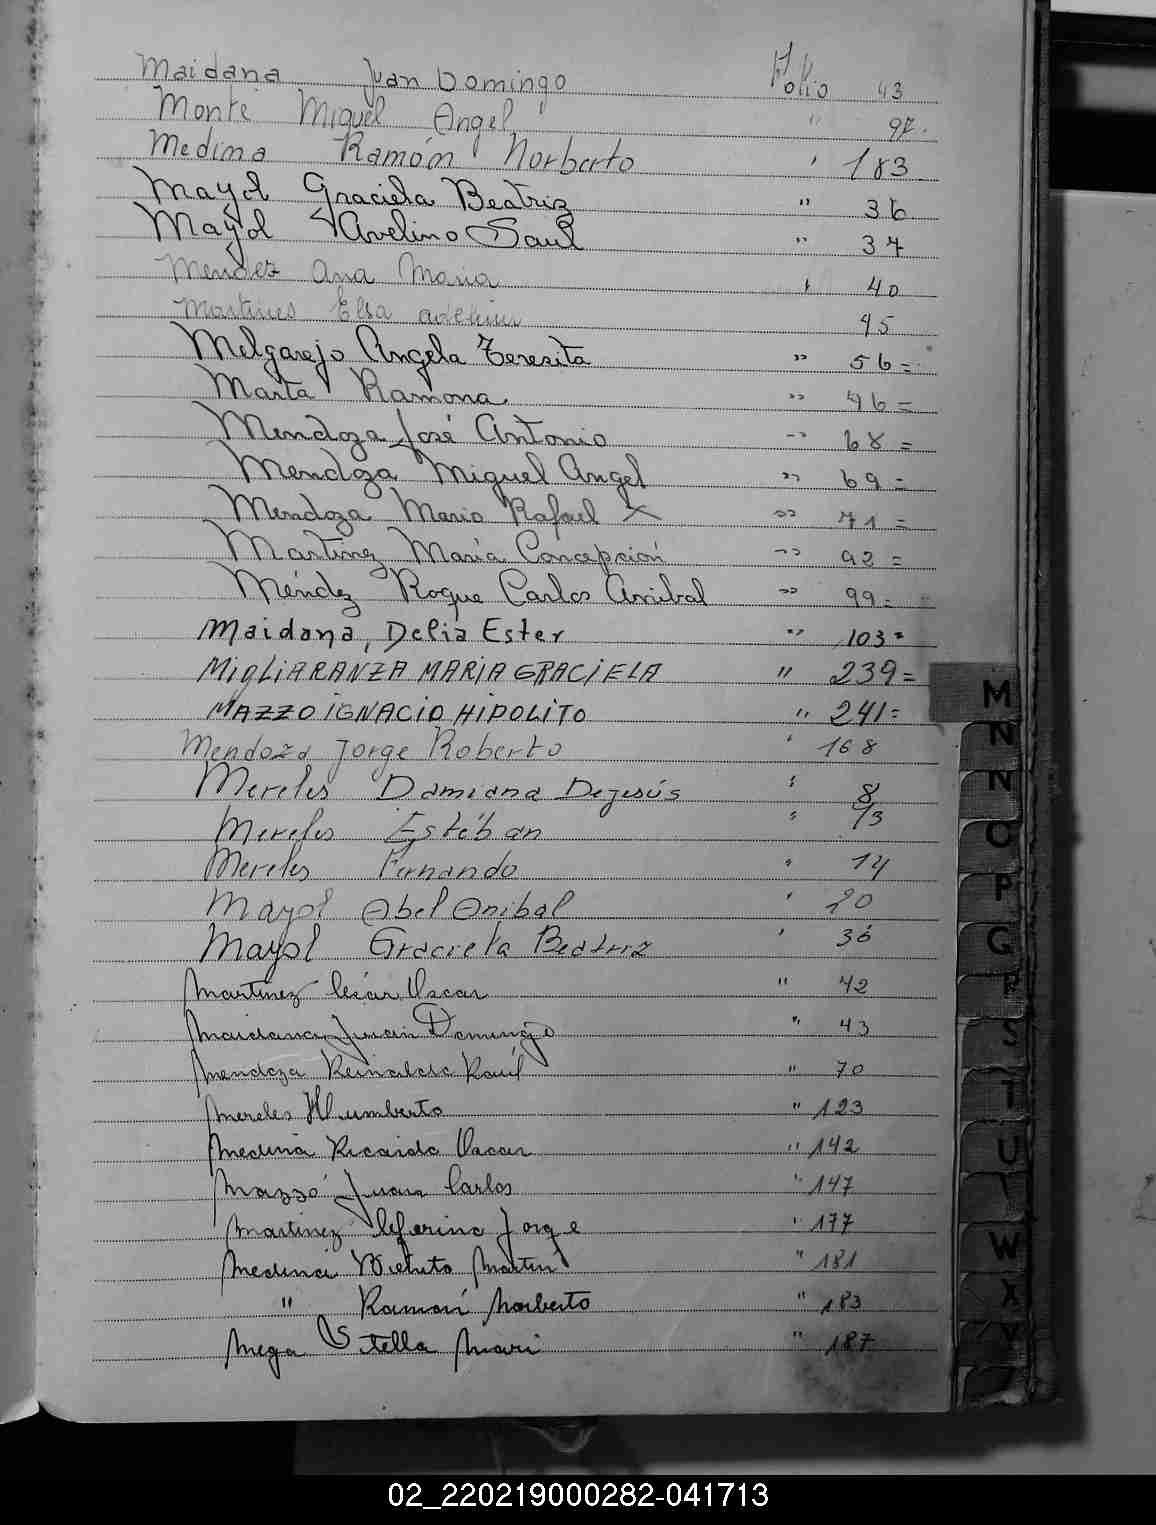 Maidana Juan Domingo Folio 43
Monte Miguel Angel " 97.
Medina Ramón Norberto " 183
Mayol Graciela Beatriz " 36
Mayol Avelino Saul " 37
Mendez Ana Maria " 40
Martines Elsa 45
Melgarejo Angela Teresita " 56=
Marta Ramona " 46=
Mendoza José Antonio " 68=
Mendoza Miguel Angel " 69=
Mendoza Mario Rafael X " 71=
Martinez Maria Concepción " 92=
Méndez Roque Carlos Anibal " 99=
Maidana, Delia Ester " 103=
MIGLIARANZA MARIA GRACIELA " 239=
MAZZO IGNACIO HIPOLITO " 241=
Mendoza Jorge Roberto " 168
Mereles Damiana Dejesús " 8
Mereles Estéban " 13
Mereles Fernando " 14
Mayol Abel Anibal " 20
Mayol Graciela Beatriz " 36
Martinez César Oscar " 42
Maidana Juan Domingo " 43
Mendoza Reinaldo Raúl " 70
Mereles Humberto " 123
Medina Ricardo Oscar " 142
Mazzo Juan Carlos " 147
Martinez Ceferino Jorge " 177
Medina Martin " 181
" Ramón Norberto " 183
Mega Stella Mari " 187
M
N
N
O
P
G
R
S
T
U
W
X
Y
02_220219000282-041713